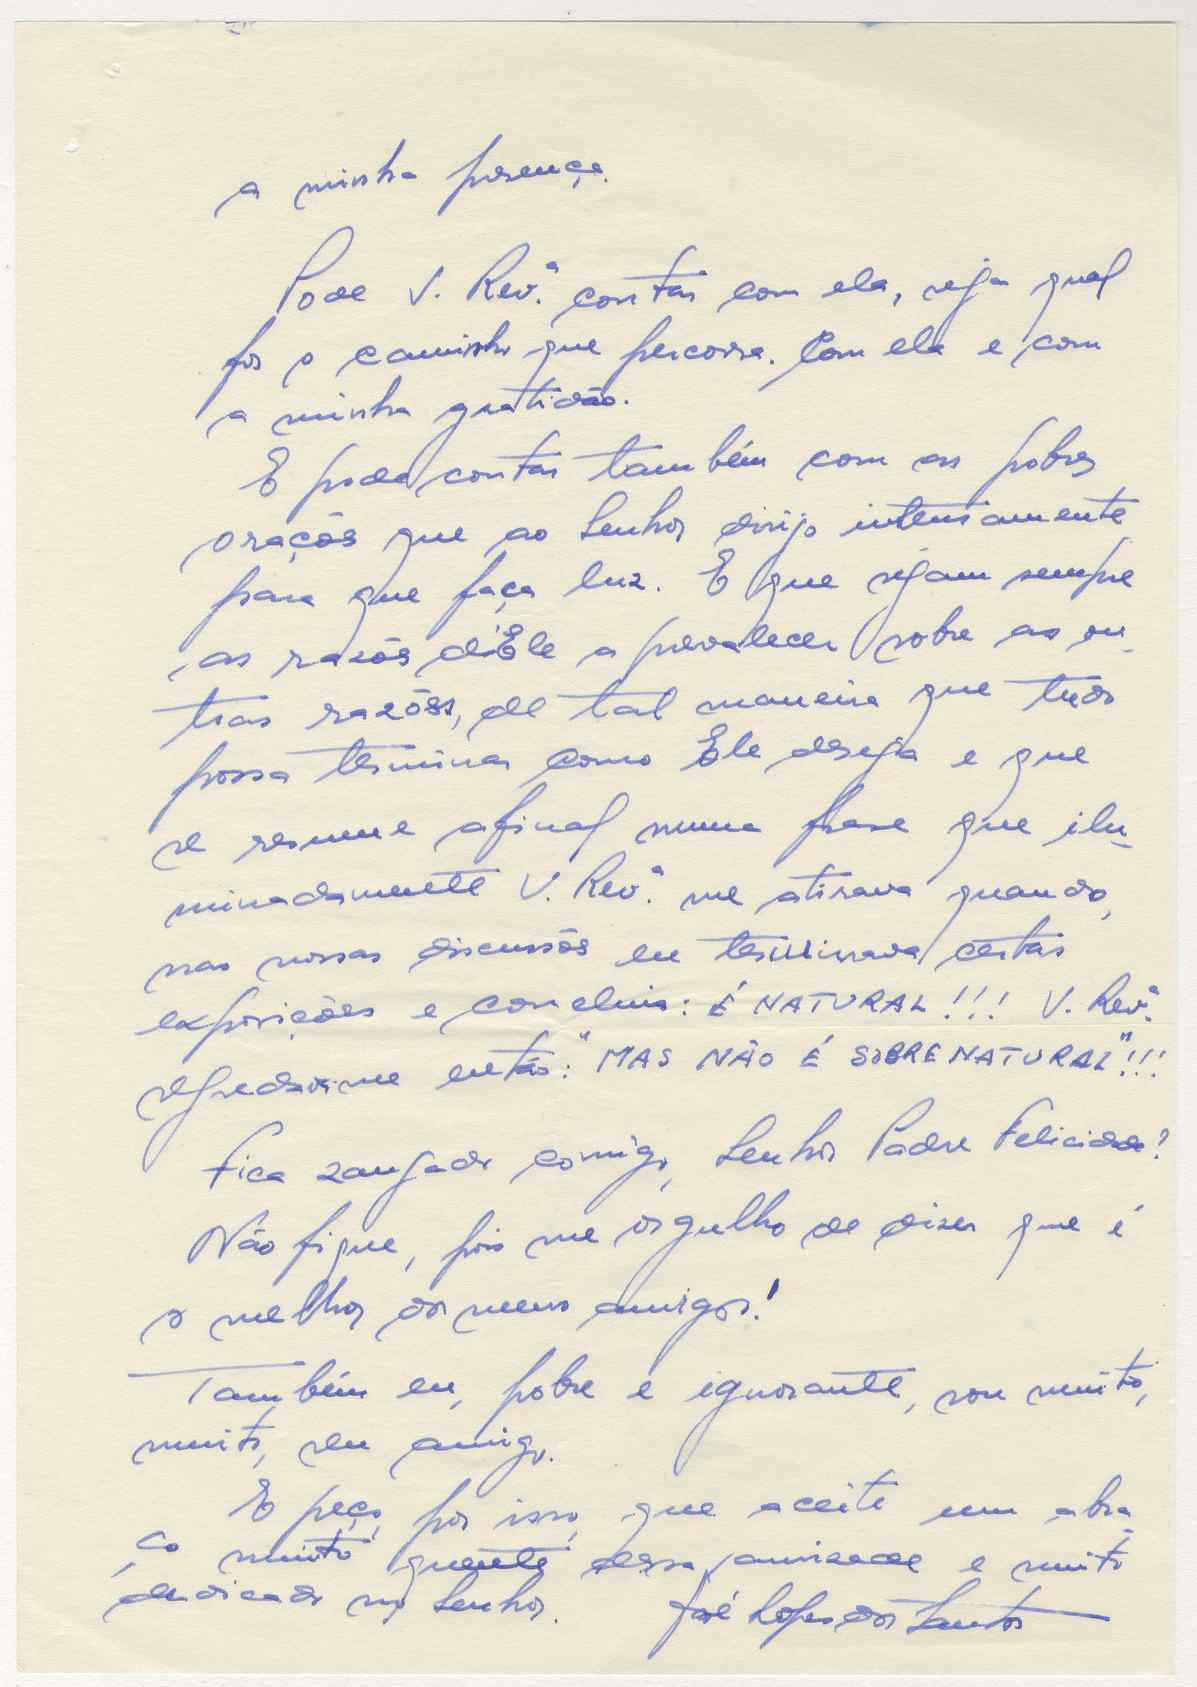 a minha presença.
Pode V. Rev.ª contar com ela, seja qual
for o caminho que percorra. Com ela e com
a minha gratidão.
E pode contar também com as pobres
orações que ao Senhor dirijo intensamente
para que faça luz. E que sejam sempre
as razões d'Ele a prevalecer sobre as ou-
tras razões, de tal maneira que tudo
possa terminar como Ele deseja e que
se resume afinal numa frase que ilu-
minadamente V. Rev.ª me atirava quando,
nas nossas discussões eu terminava certas
exposições e concluia: É NATURAL!!! V. Rev.ª
segredava-me então: "MAS NÃO É SOBRENATURAL"!!!
Fica zangado comigo, Senhor Padre Felicidade?
Não fique, pois me orgulho de dizer que é
o melhor dos meus amigos!
Também eu, pobre e ignorante, sou muito,
muito, seu amigo.
E peço, por isso, que aceite um abra-
ço muito quente dessa amizade e muito
dedicado no Senhor. José Lopes dos Santos